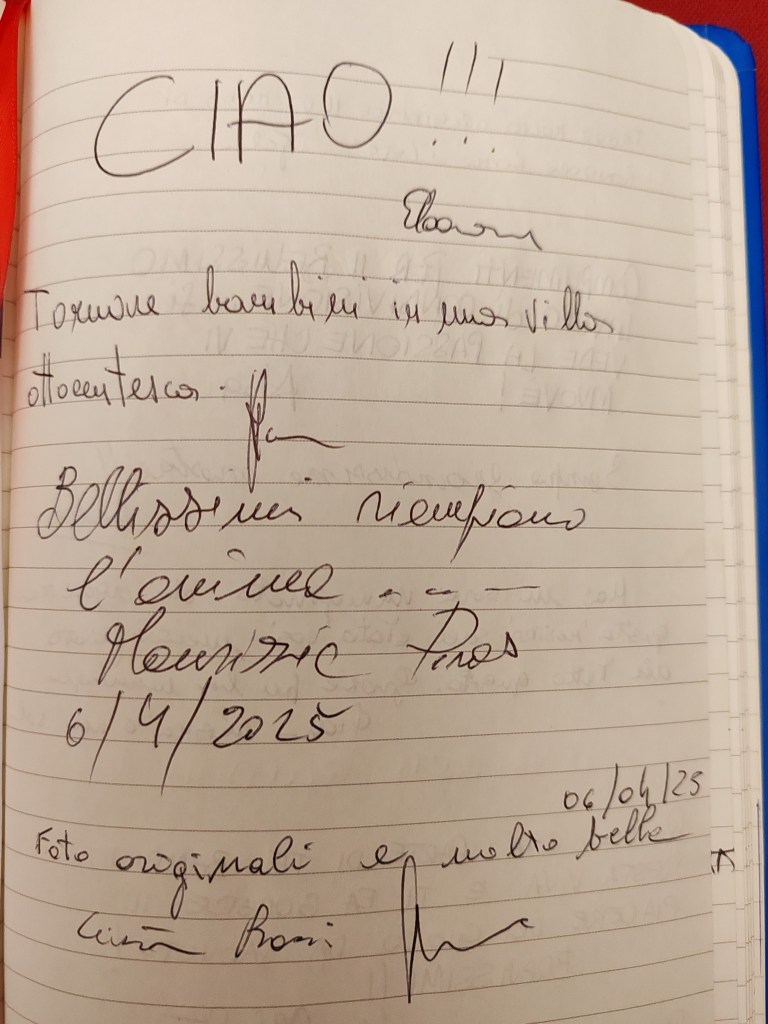 CIAO!!!
Tornare bambini in una villa
ottocentesca.
Bellissimi riempiono
l'anima ....
Maurizio Piras
6/4/2025
06/04/25
Foto originali e molto belle